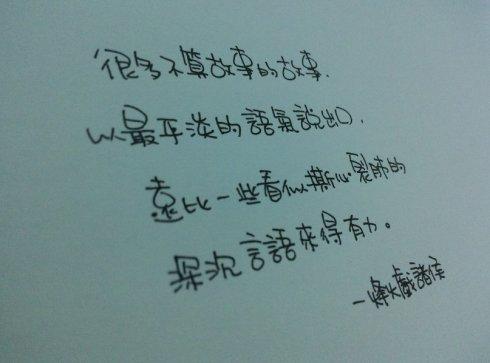 很多不算故事的故事.
以最平淡的語氣說出口.
遠比一些看似撕心裂肺的
深沉言語來得有力。
—烽火戲諸侯